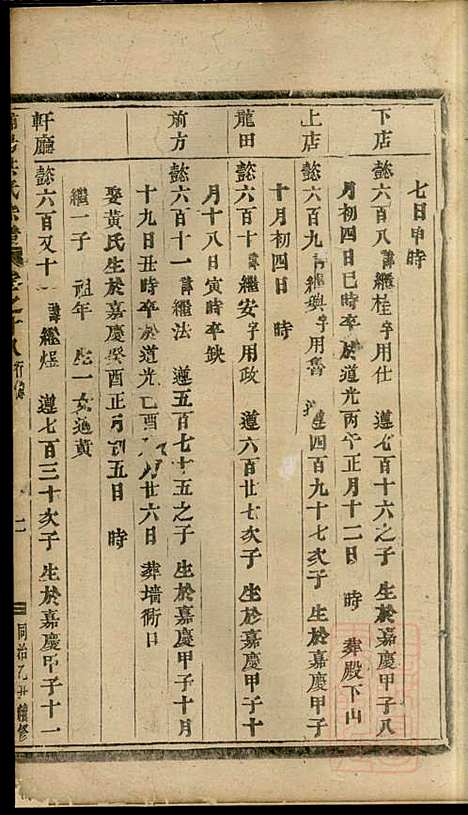 七日申時
下店　懿六百八諱繼桂字用仕　遵七百十六之子　生於嘉慶甲子八
月初四日巳時卒於道光丙午正月十二日　時　葬殿下山
上店　懿六百九諱繼輿字用魯　遵四百九十七次子　生於嘉慶甲子
十月初四日　時
龍田　懿六百十諱繼安字用政　遵六百廿七次子　生於嘉慶甲子十
月十八日寅時卒缺
前方　懿六百十一諱繼法　遵五百七十五之子　生於嘉慶甲子十月
十九日丑時卒於道光己酉 月廿六日　葬墻衕口
娶黃氏生於嘉慶癸酉正月初五日　時
繼一子　祖年　生一女適黃
軒廳　懿六百又十諱繼煜　遵七百三十次子　生於嘉慶甲子十一
氏宗譜 卷之十八 行傳 二 同治乙丑續修